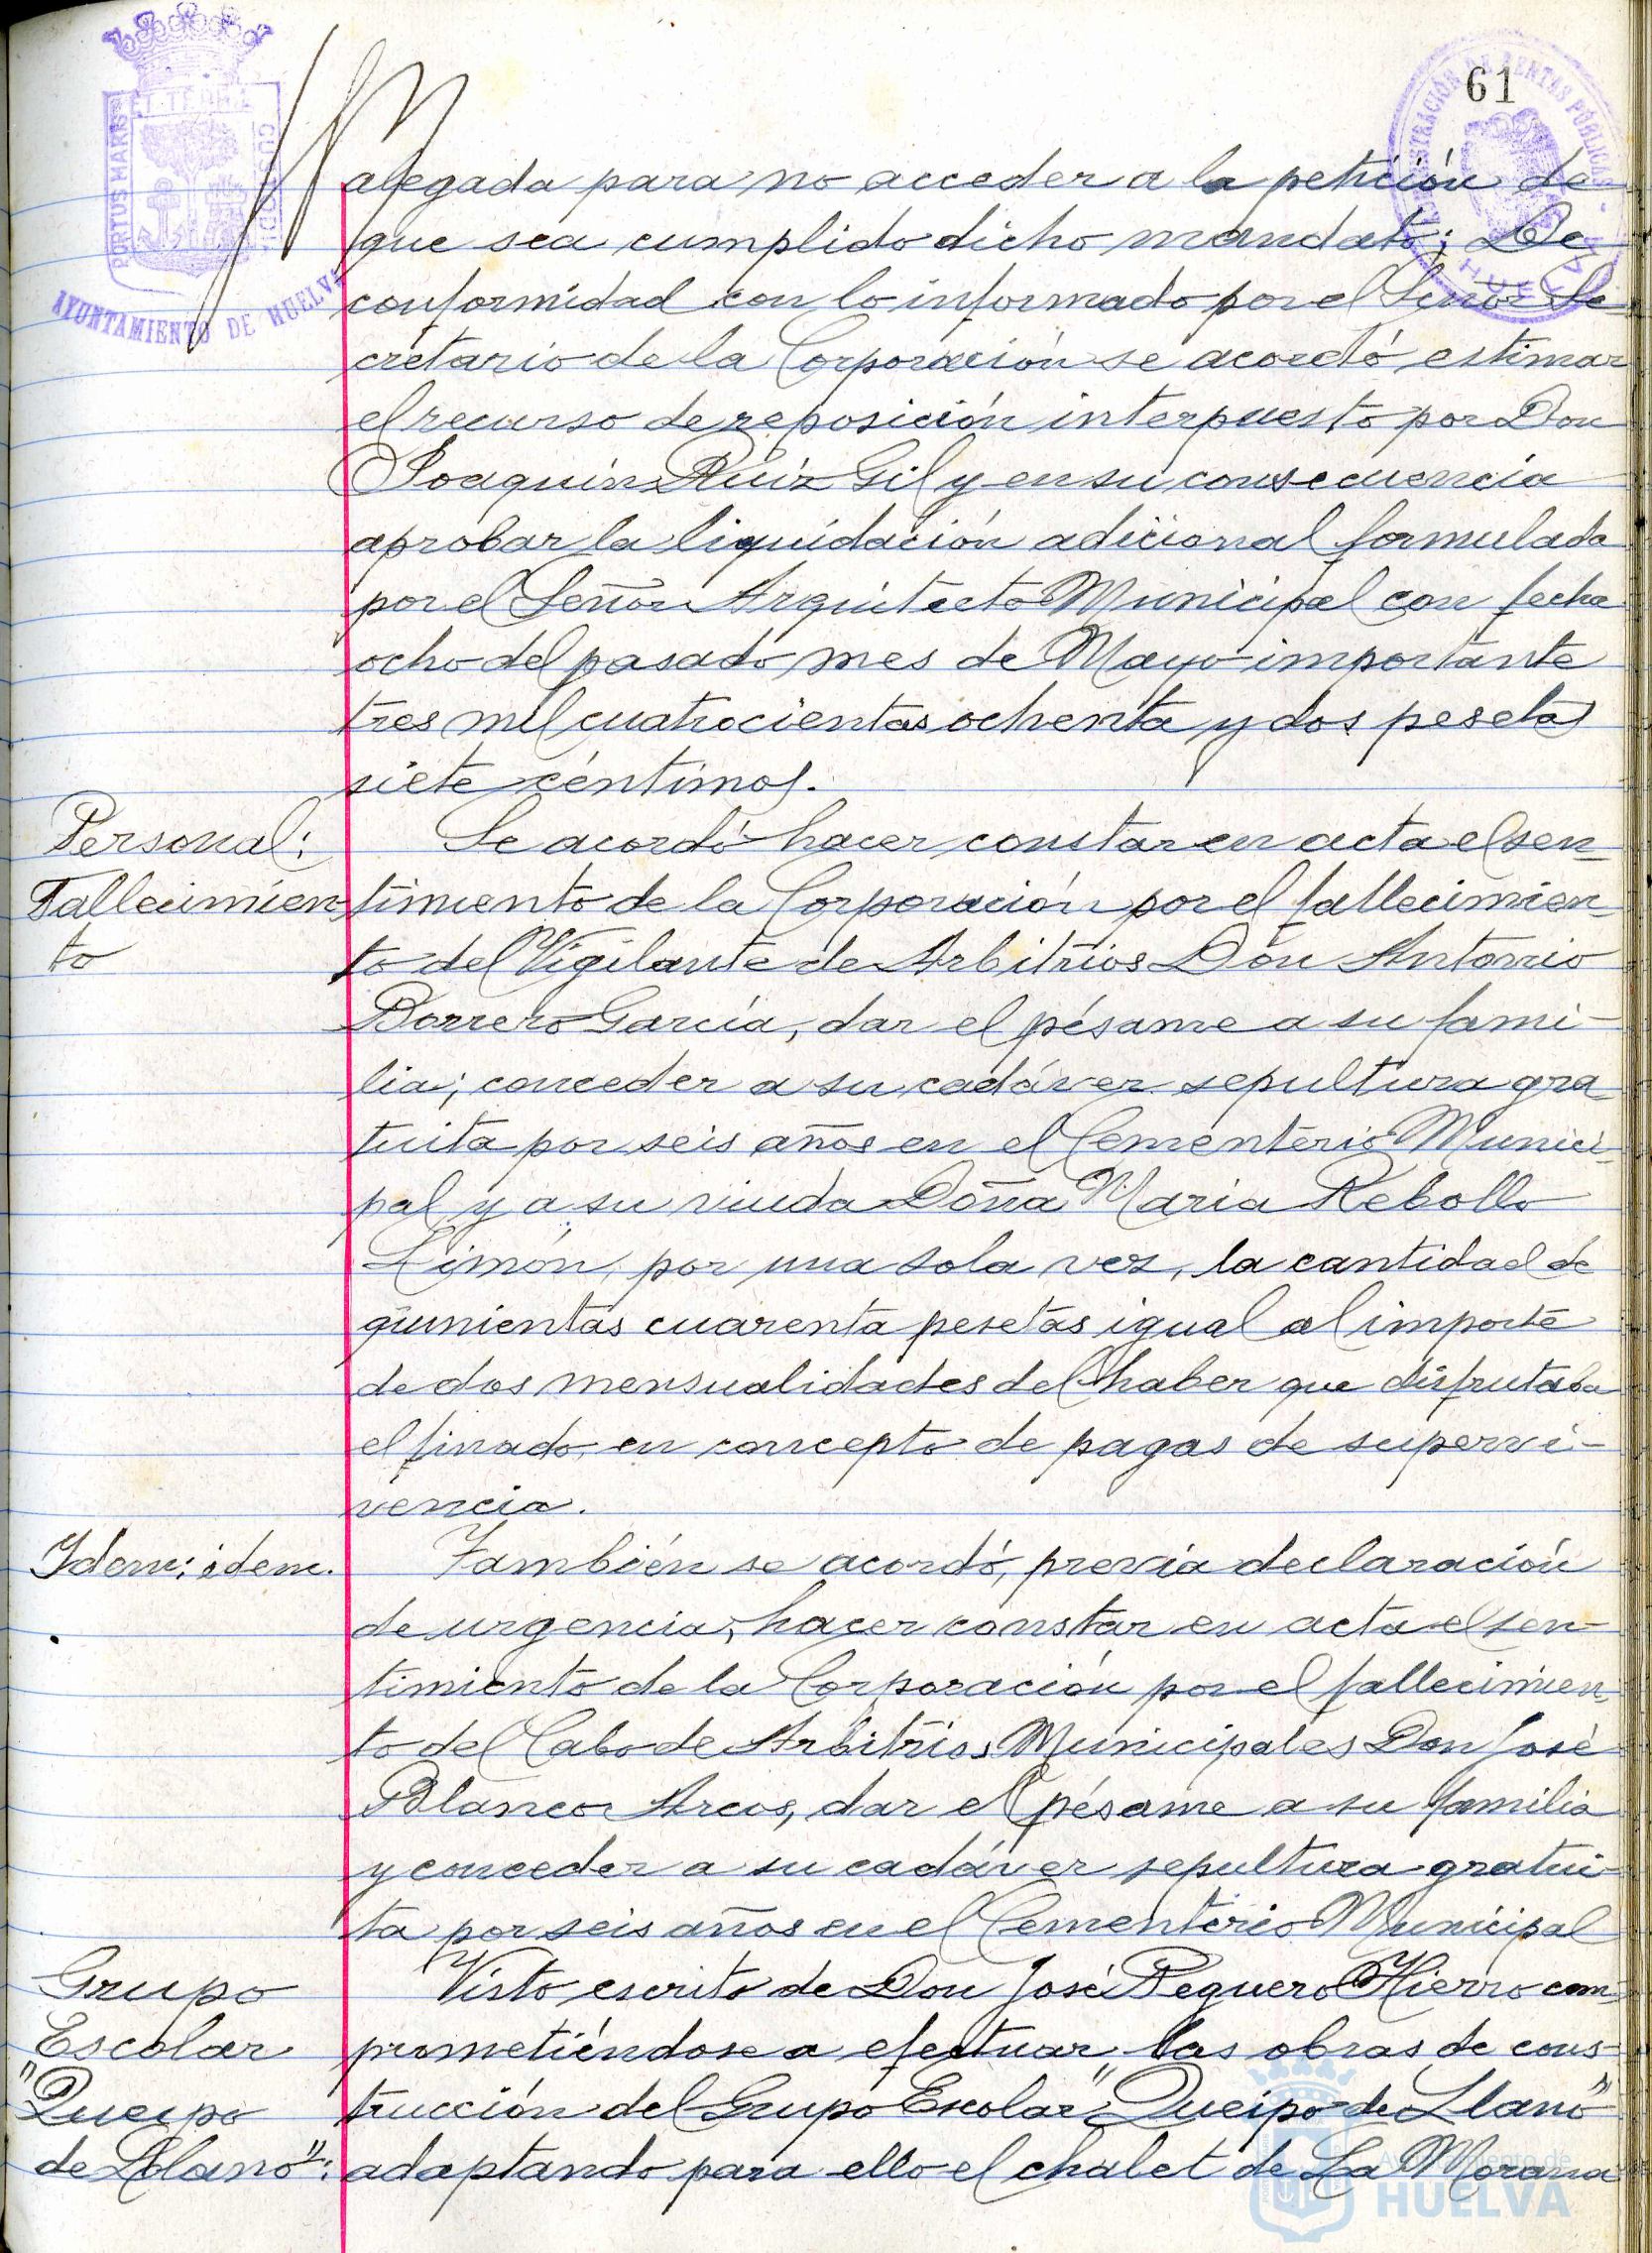 61
PORTUS MARIS ET TERRAE CUSTODIA
AYUNTAMIENTO DE HUELVA
ADMINISTRACIÓN DE RENTAS PÚBLICAS
HUELVA
alegada para no acceder a la petición de
que sea cumplido dicho mandato; De
conformidad con lo informado por el Señor Se
cretario de la Corporación se acordó estimar
el recurso de reposición interpuesto por Don
Joaquín Ruiz Gil y en su consecuencia
aprobar la liquidación adicional formulada
por el Señor Arquitecto Municipal con fecha
ocho del pasado mes de Mayo importante
tres mil cuatrocientas ochenta y dos pesetas
siete céntimos.
Personal:
Fallecimien
to
Se acordó hacer constar en acta el sen-
timiento de la Corporación por el fallecimien-
to del Vigilante de Arbitrios Don Antonio
Borrero García, dar el pésame a su fami-
lia; conceder a su cadáver sepultura gra-
tuita por seis años en el Cementerio Munici-
pal y a su viuda Doña María Rebollo
Limón, por una sola vez, la cantidad de
quinientas cuarenta pesetas igual al importe
de dos mensualidades del haber que disfrutaba
el finado en concepto de pagas de supervi-
vencia.
Idem: idem.
También se acordó, previa declaración
de urgencia, hacer constar en acta el sen-
timiento de la Corporación por el fallecimien
to del Cabo de Arbitrios Municipales Don José
Blanco Arcos, dar el pésame a su familia
y conceder a su cadáver sepultura gratui-
ta por seis años en el Cementerio Municipal
Grupo
Escolar
"Queipo
de Llano":
Visto escrito de Don José Peguero Hierro com-
prometiéndose a efectuar las obras de cons-
trucción del Grupo Escolar "Queipo de Llano"
adaptando para ello el chalet de La Morana
Ayuntamiento de
HUELVA